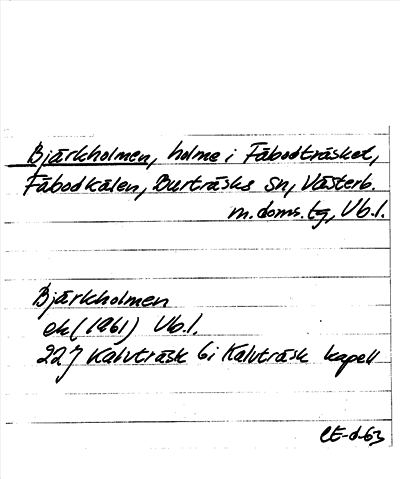 Bjärkholmen, holme i Fäbodträsket,
Fäbodkälen, Burträsks sn, Västerb.
m. doms. tg, Vb. l.
Bjärkholmen
ek (1961) Vb. l.
22J Kalvträsk 6i Kalvträsk kapell
CE-d-63